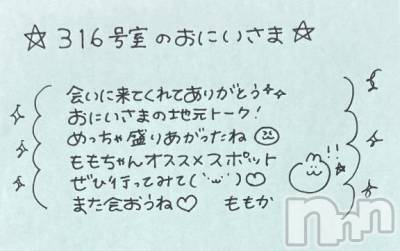 ☆316号室のおにいさま☆
会いに来てくれてありがとう✧✧
おにいさまの地元トーク!
めっちゃ盛りあがったね☺
ももちゃんオススメスポット
ぜひ行ってみて(˙ω˙)♡
!!
また会おうね♡ ももか
nnn